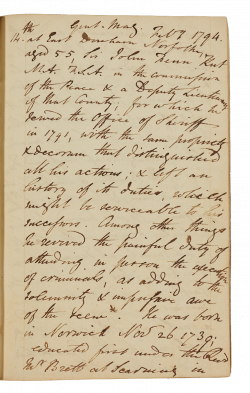 Gent. Mag. Feby 1794.
th
14. at East Dereham Norfolk
aged 55 Sir John Fenn Knt
M.A. F.A.S. in the commission
of the Peace & a Deputy Lieutenant
of that County; for which he
served the Office of Sheriff
in 1791, with the same propriety
& decorum that distinguished
all his actions; & left an
history of its duties, which
might be serviceable to his
successors. Among other things
he revived the painful duty of
attending in person the execution
of criminals, as adding to the
solemnity & impressive awe
of the scene". He was born
in Norwich Novr 26 1739;
educated first under the Revd
Mr Brett at Scarning in